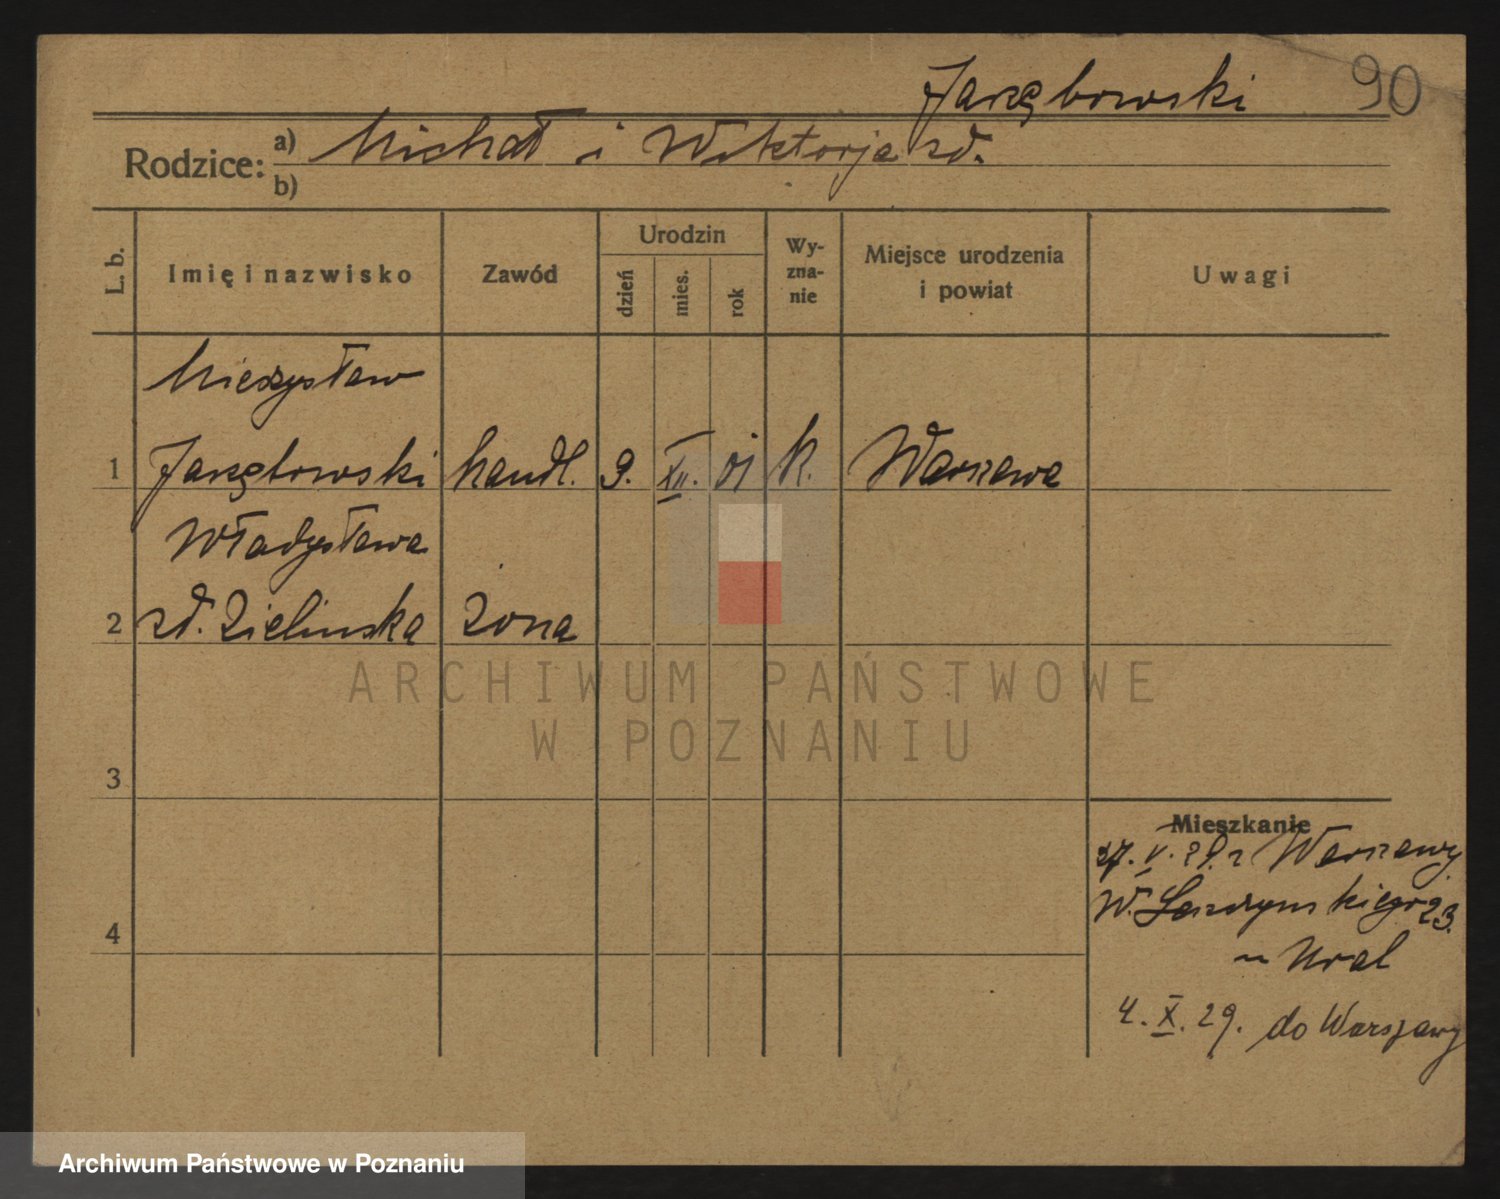 Jarzębowski 90
Rodzice: a) Michał i Wiktorja zd.
b)
L. b. Imię i nazwisko Zawód Urodzin dzień mies. rok Wyznanie Miejsce urodzenia i powiat Uwagi
Mieczysław
1 Jarzębowski handl. 9. XII. 01 k. Warszawa
Władysława
2 zd. Zielinska żona
3
Mieszkanie
27. V. 29. z Warszawy
W. 23.
4
u Kral
4. X. 29. do Warszawy
ARCHIWUM PAŃSTWOWE
W POZNANIU
Archiwum Państwowe w Poznaniu